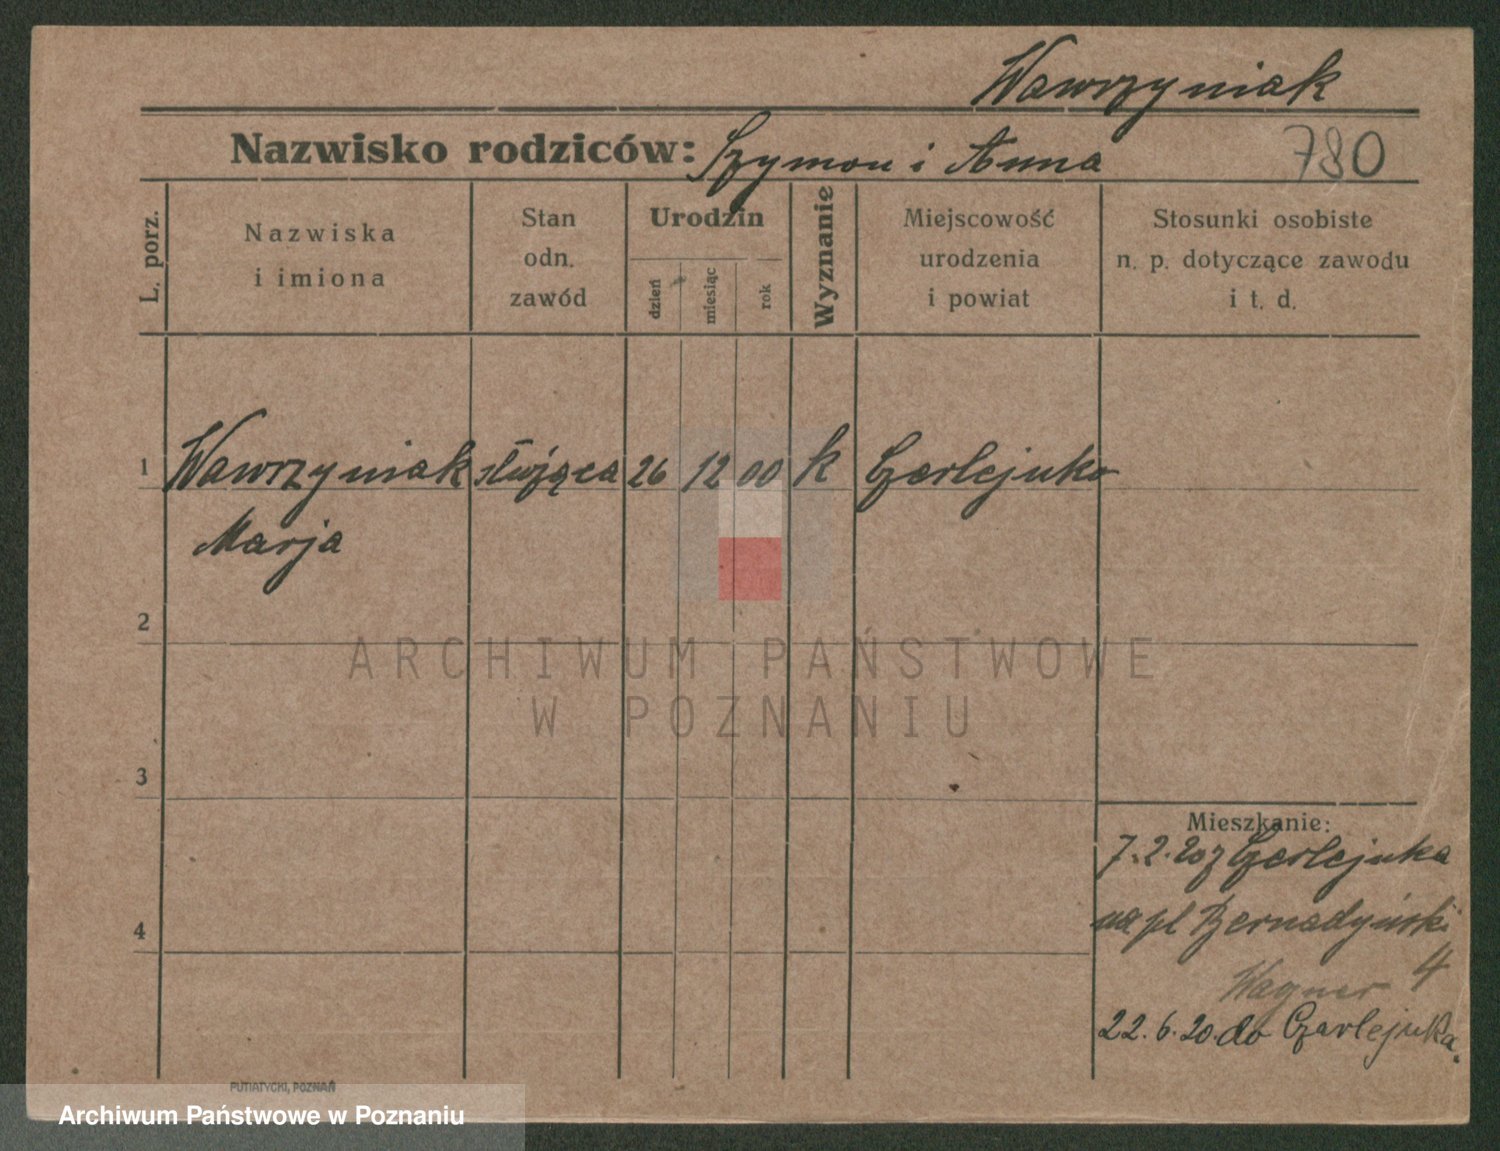 Wawrzyniak
Nazwisko rodziców: Szymon i Anna 780
L. porz.
Nazwiska
i imiona
Stan
odn.
zawód
Urodzin
dzień
miesiąc
rok
Wyznanie
Miejscowość
urodzenia
i powiat
Stosunki osobiste
n. p. dotyczące zawodu
i t. d.
1 Wawrzyniak służąca 26 12 00 k Czerlejnko
Marja
2
ARCHIWUM PAŃSTWOWE
W POZNANIU
3
Mieszkanie:
7.2.20 z Czerlejnka
na pl Bernadyński
4
4
Wagner
22.6.20. do Czerlejnka.
PUTIATYCKI, POZNAŃ
Archiwum Państwowe w Poznaniu